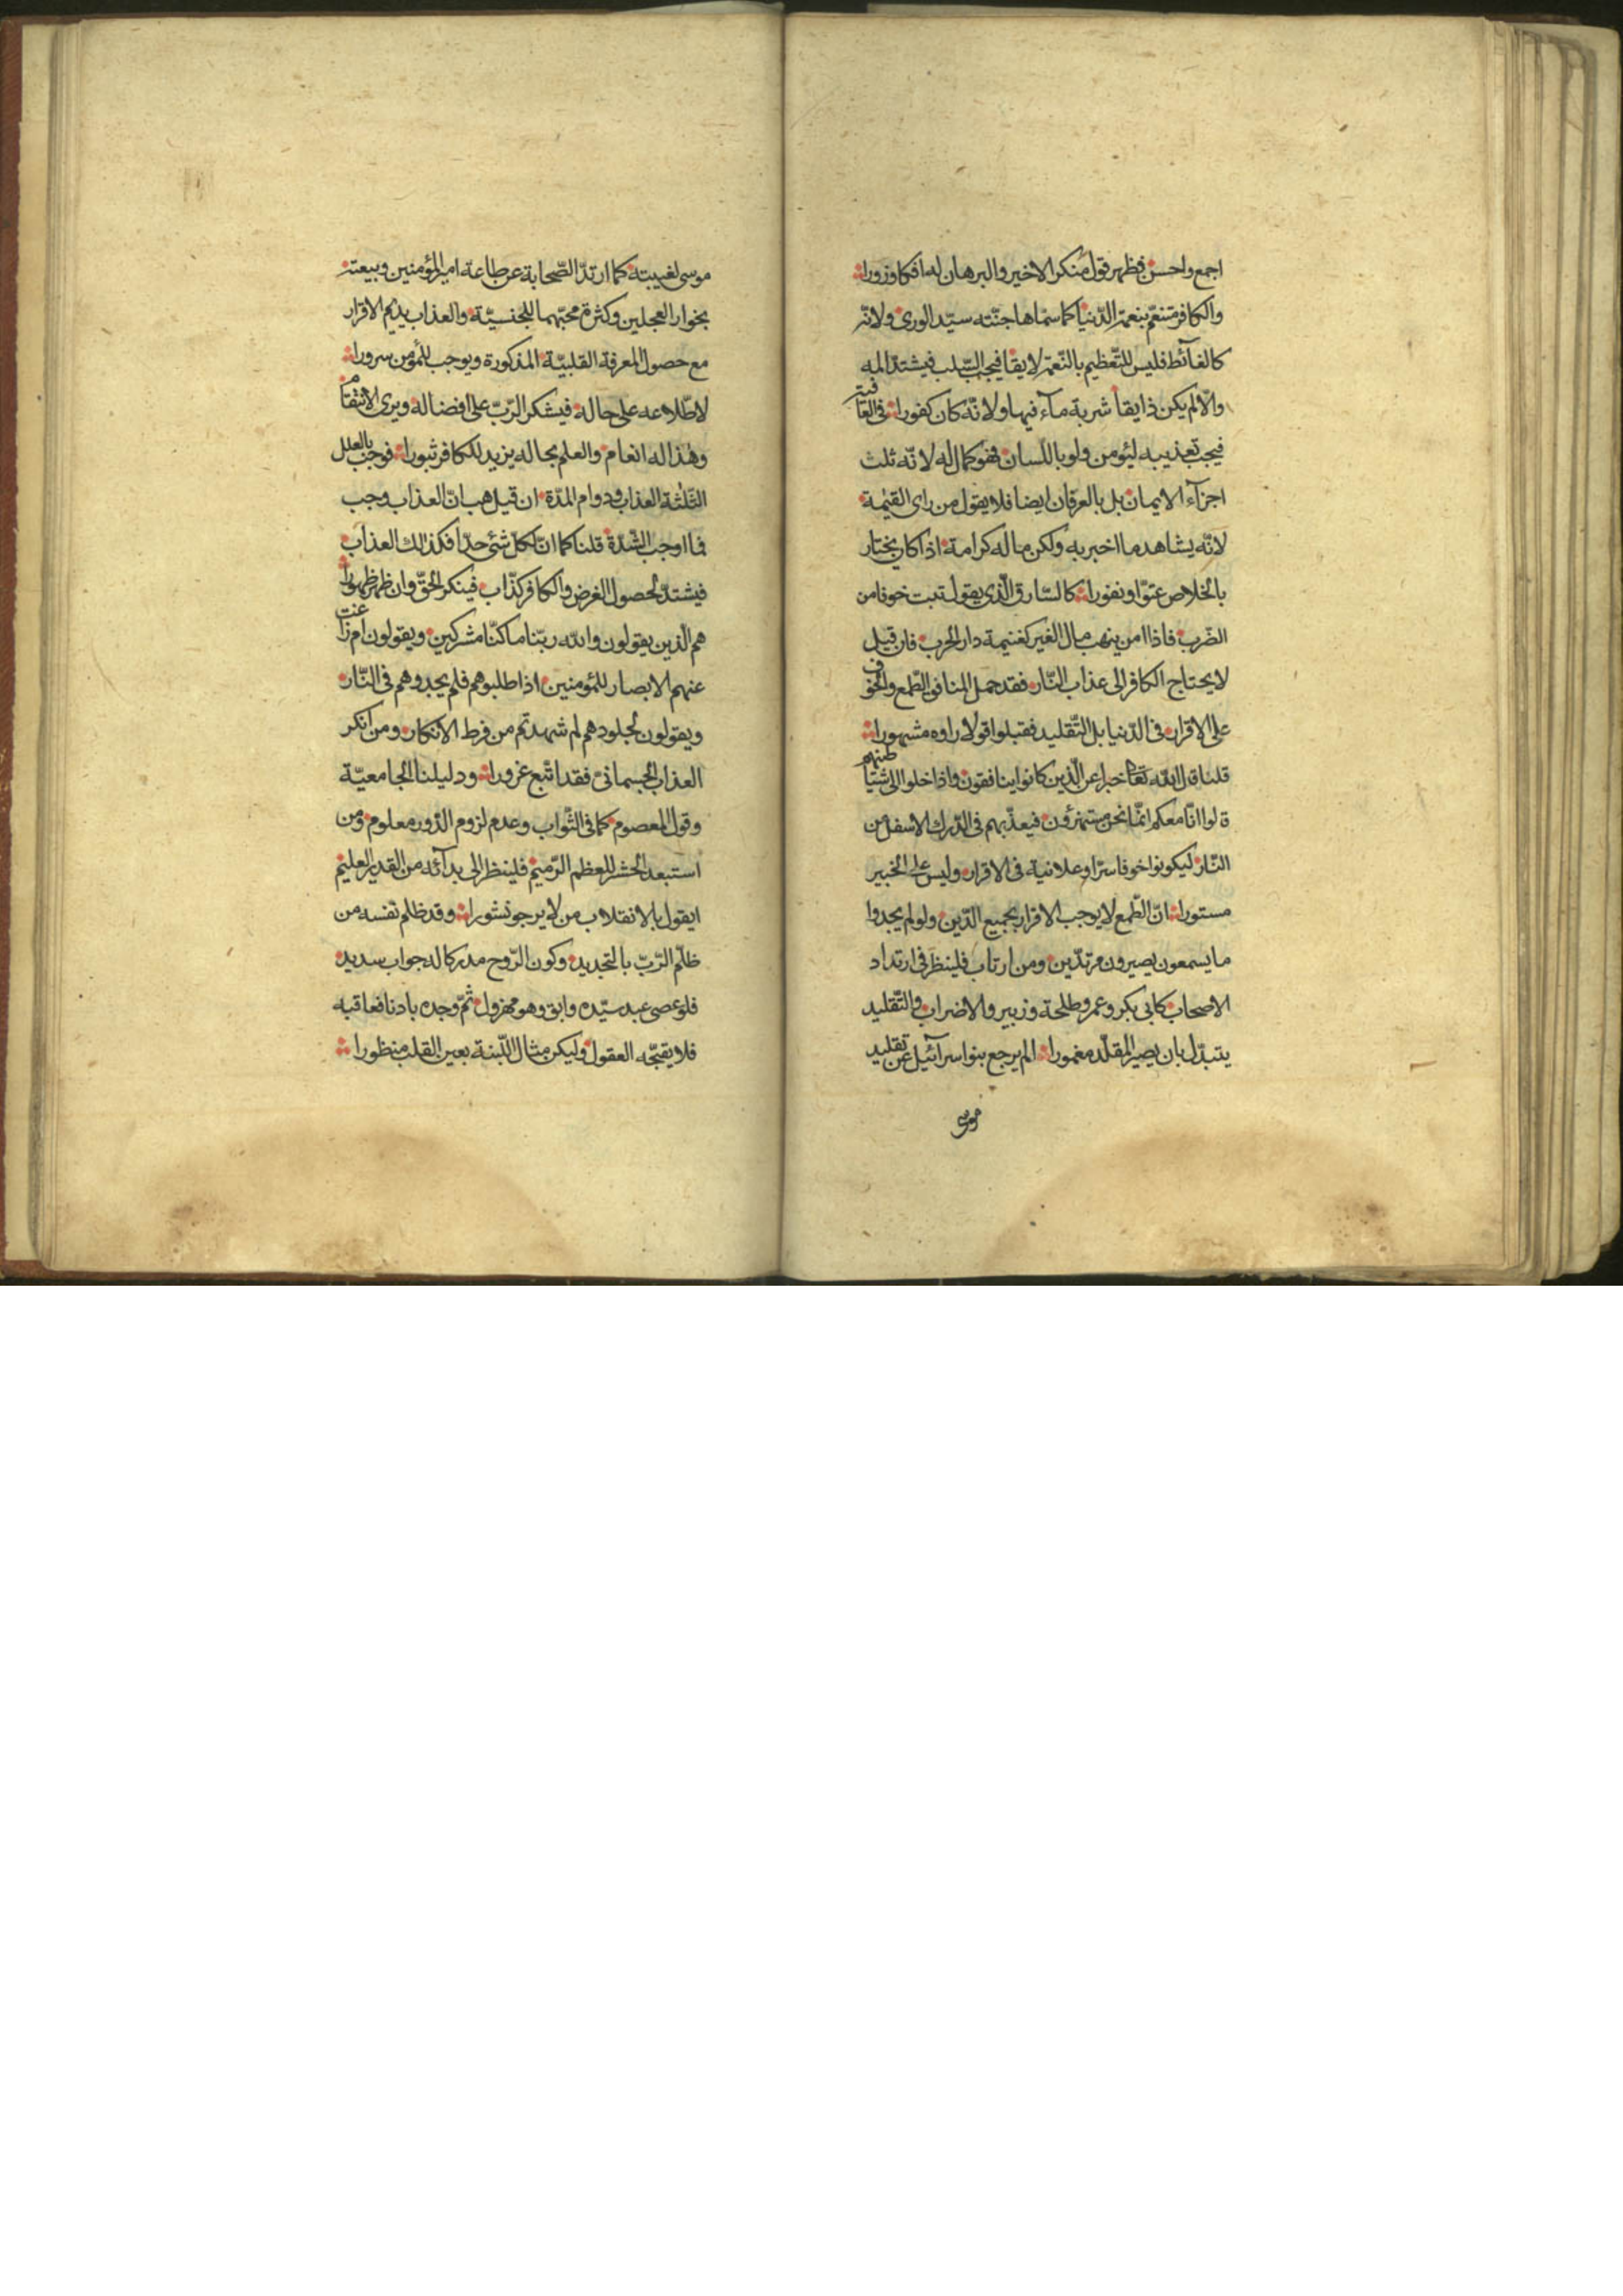 اجمع واحسن فظهر قول منكر الاخير والبرهان له افكا وزورا
والكافر متنعّم بنعمة الدّنيا كما سمّاها جنّته سيّد الورى ولانّه
كالغآئط فليس للتّعظيم بالنّعمة لايقا فيجب السّلب فيشتدّ المه
والّا لم يكن ذايقا شربة مآء فيها ولانّه كان كفورا فى العاقبة
فيجب تعذيبه ليؤمن ولو باللّسان فهو كمال له لانّه ثلث
اجزآء الايمان بل بالعرفان ايضا فلا يقول من راى القيٰمة
لانّه يشاهد ما اخبر به ولكن ماله كرامة اذا كان يختار
بالخلاص عتوّا ونفورا كالسّارق الّذى يقول تبت خوفا من
الضّرب فاذا امن ينهب مال الغير كغنيمة دار الحرب فان قيل
لا يحتاج الكافر الى عذاب النّار فقد حمل المنافق الطّمع والخوف
على الاقرار فى الدّنيا بل التّقليد فقبلوا قولا راوه مشهورا
قلنا قال اللّه تعالى خبرا عن الّذين كانوا ينافقون واذا خلوا الى شيٰطينهم
قالوا انّا معكم انّما نحن مستهزؤن فيعذّبهم فى الدّرك الاسفل من
النّار ليكونوا خوفا سرّا وعلانية فى الاقرار وليس على الخبير
مستورا انّ الطّمع لا يوجب الاقرار بجميع الدّين ولو لم يجدوا
ما يسمعون يصيرون مرتدّين ومن ارتاب فلينظر فى ارتداد
الاصحاب كابى بكر وعمر وطلحة وزبير والاضراب والتّقليد
يتبدّل بان يصير المقلّد مغمورا الم يرجع بنو اسرآئيل عن تقليد
موسى
موسى لغيبته كما ارتدّ الصّحابة عن طاعة امير المؤمنين وبيعته
بخوار العجلين وكثرة محبّهما للجنسيّة والعذاب يديم الاقرار
مع حصول المعرفة القلبيّة المذكورة ويوجب للمؤمن سرورا
لاطّلاعه على حاله فيشكر الرّبّ على افضاله ويرى الانتقام
وهٰذا له انعام والعلم بحاله يزيد للكافر ثبورا فوجب بالعلل
الثّلثة العذاب ودوام المدّة ان قيل هب انّ العذاب وجب
فما اوجب الشّدّة قلنا كما انّ لكلّ شئ حدّا فكذلك العذاب
فيشتدّ لحصول الغرض والكافر كذّاب فينكر الحقّ وان ظهر ظهورا
هم الّذين يقولون واللّه ربّنا ما كنّا مشركين ويقولون ام زاغت
عنهم الابصار للمؤمنين اذا طلبوهم فلم يجدوهم فى النّار
ويقولون لجلودهم لم شهدتم من فرط الانكار ومن انكر
العذاب الجسمانىّ فقد اتّبع غرورا ودليلنا الجامعيّة
وقول المعصوم كما فى الثّواب وعدم لزوم الدّور معلوم ومن
استبعد الحشر للعظم الرّميم فلينظر الى بدآئه من القدير العليم
ايقول بالانقلاب من لا يرجو نشورا وقد ظلم نفسه من
ظلّم الرّبّ بالتجديد وكون الرّوح مدركا له جواب سديد
فلو عصى عبد سيّده وابق وهو مهزول ثمّ وجده بادنا فعاقبه
فلا يقبّحه العقول وليكن مثال اللّبنة بعين القلب منظورا